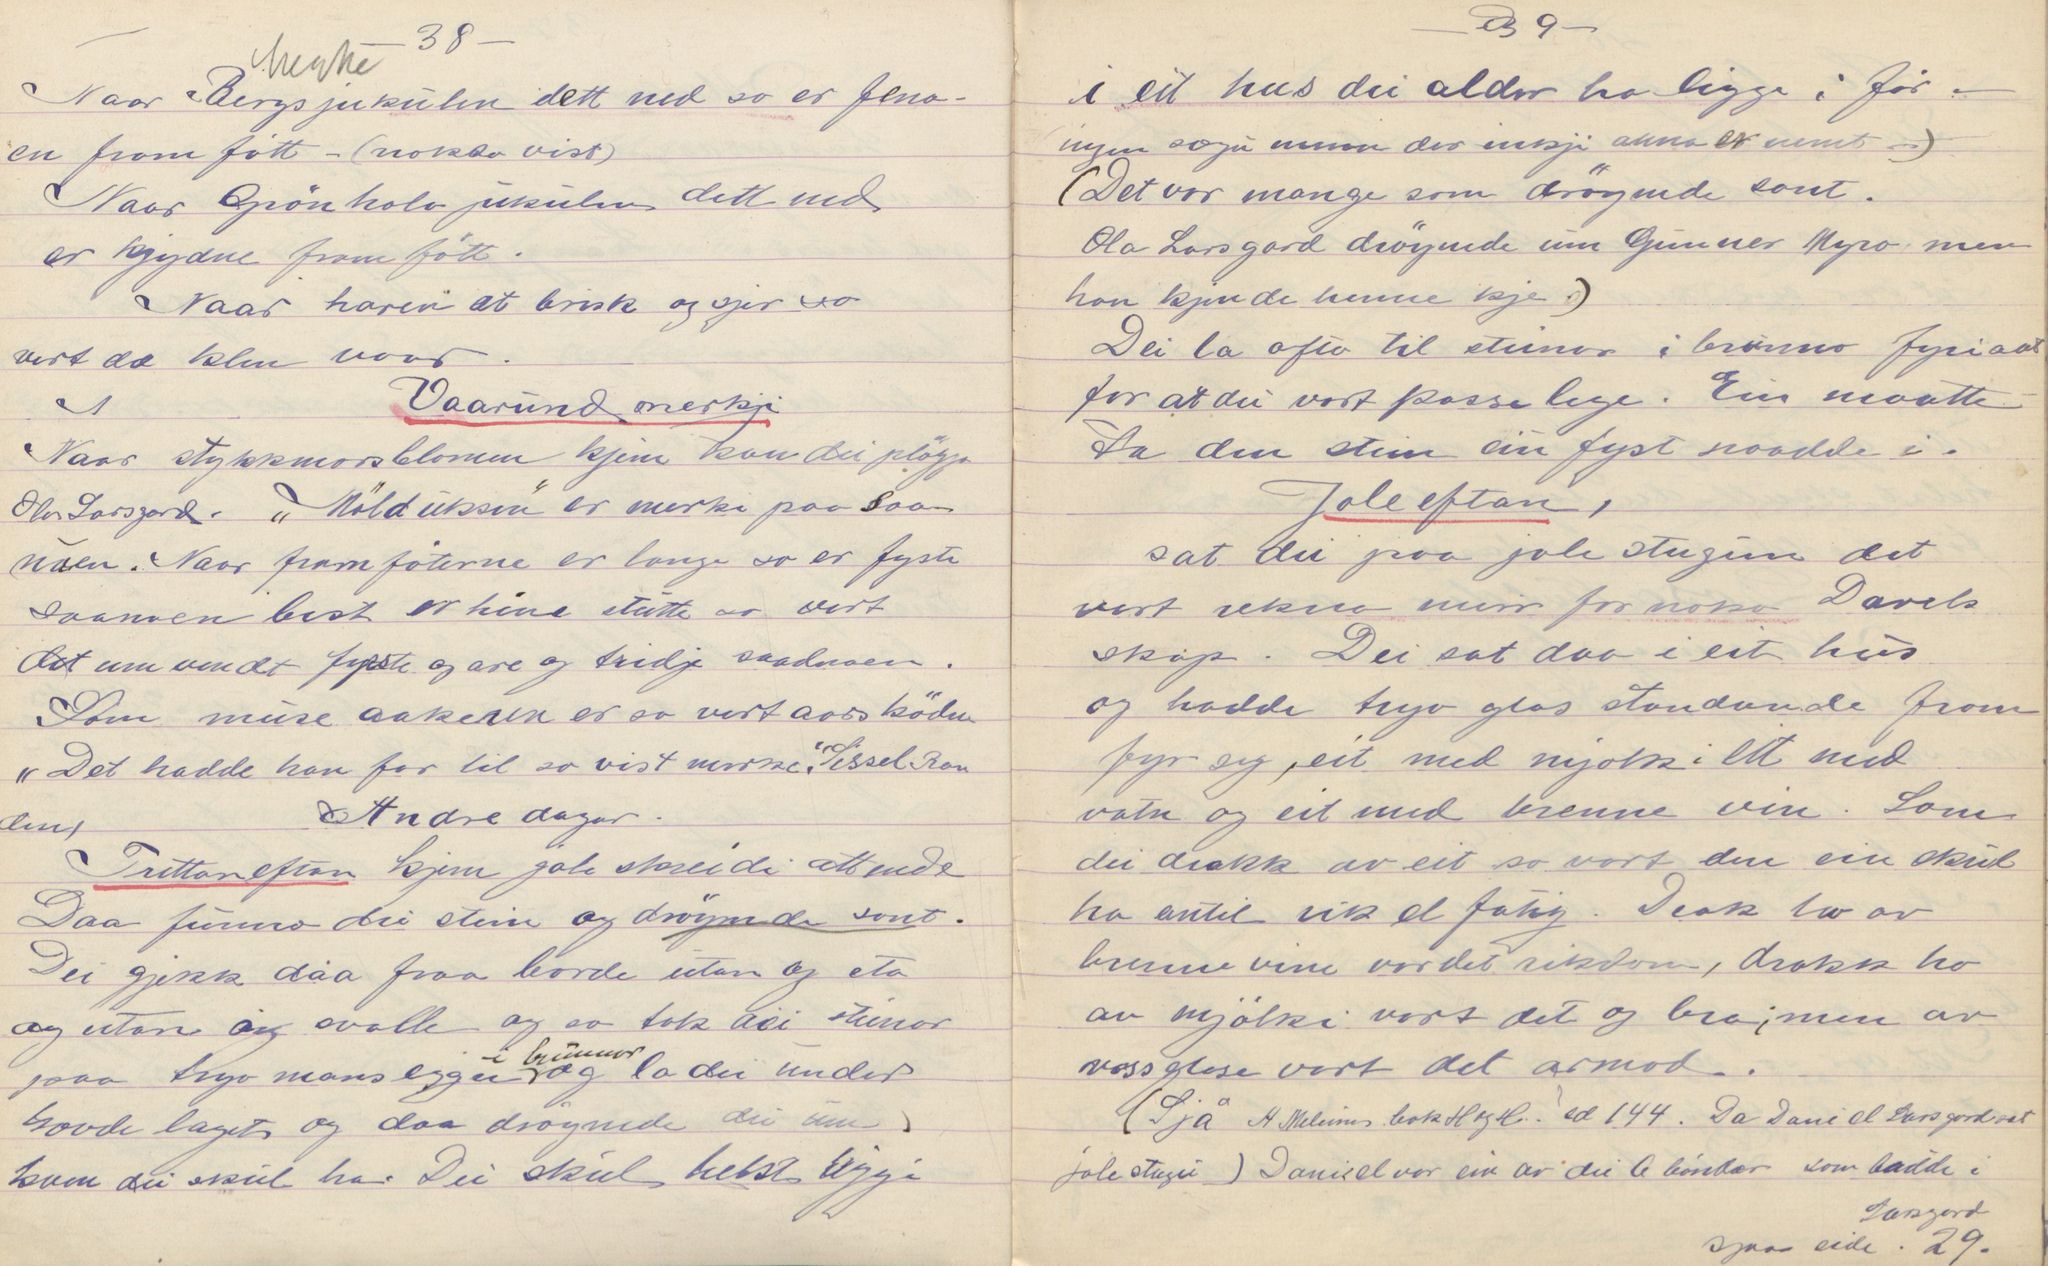 - 38 -
merke
Naar Bergsjukulen dett ned so er fena-
en fram fött - (nokso vist)
Naar Grönholo jukulen dett ned
er kjydne fram fött.
Naar haren et brisk og gjer so
vert dæ klen vaar.
Vaarund merkji
Naar stykkmorsblomen kjem kan dei plögja
Ola Larsgard. "Möld uksen" er merki paa saa
naen. Naar framföterne er lange so er fyste
saanaen best er hine stutte so vert
det um vendt fyste og are og tridje saadnaen.
Som muse aakeren er so vert aarsköden
"Det hadde han far til so vist merke." Sissel Ran
den,
Andre dagar.
Trettaneftan kjem jole skreidi attende
Daa funno dei stein og dröymde sant.
Dei gjekk daa fraa borde utan og eta
og utan og svalle og so tok dei steinar
paa tryo manseggei i brunnor og la dei under
hovde laget og daa dröymde dei um
kven dei skul ha. Dei skul helst liggja
- 39 -
i eit hus dei alder ha ligge i för -
ingen sogu mun der inkji anna er nemt -)
(Det var mange som dröymde sant.
Ola Larsgard dröymde um Gunner Myro men
han kjende henne kje.)
Dei la ofto til steinar i brunno fyriaat
for at dei vart passe lege. Ein maatte
ta den stein ein fyst naadde i.
Joleeftan,
sat dei paa jole stugun det
vart rekna meir for noko Davels
skap. Dei sat daa i eit hus
og hadde tryo glas standande fram
fyr seg, eit med mjölk i ett med
vatn og eit med brenne vin. Som
dei drakk av eit so vart den ein skul
ha antil rik el fatig. Drak ho av
brenne vine vardet rikdom, drakk ho
av mjölki vart det og bra; men av
vassglase vart det armod.
(Sjå A Mehums bok H og H. sd 144. Da Daniel Larsgard sat
jole stugu) Daniel var ein av dei 6 böndar som budde i
Larsgard
sjaa side. 29.